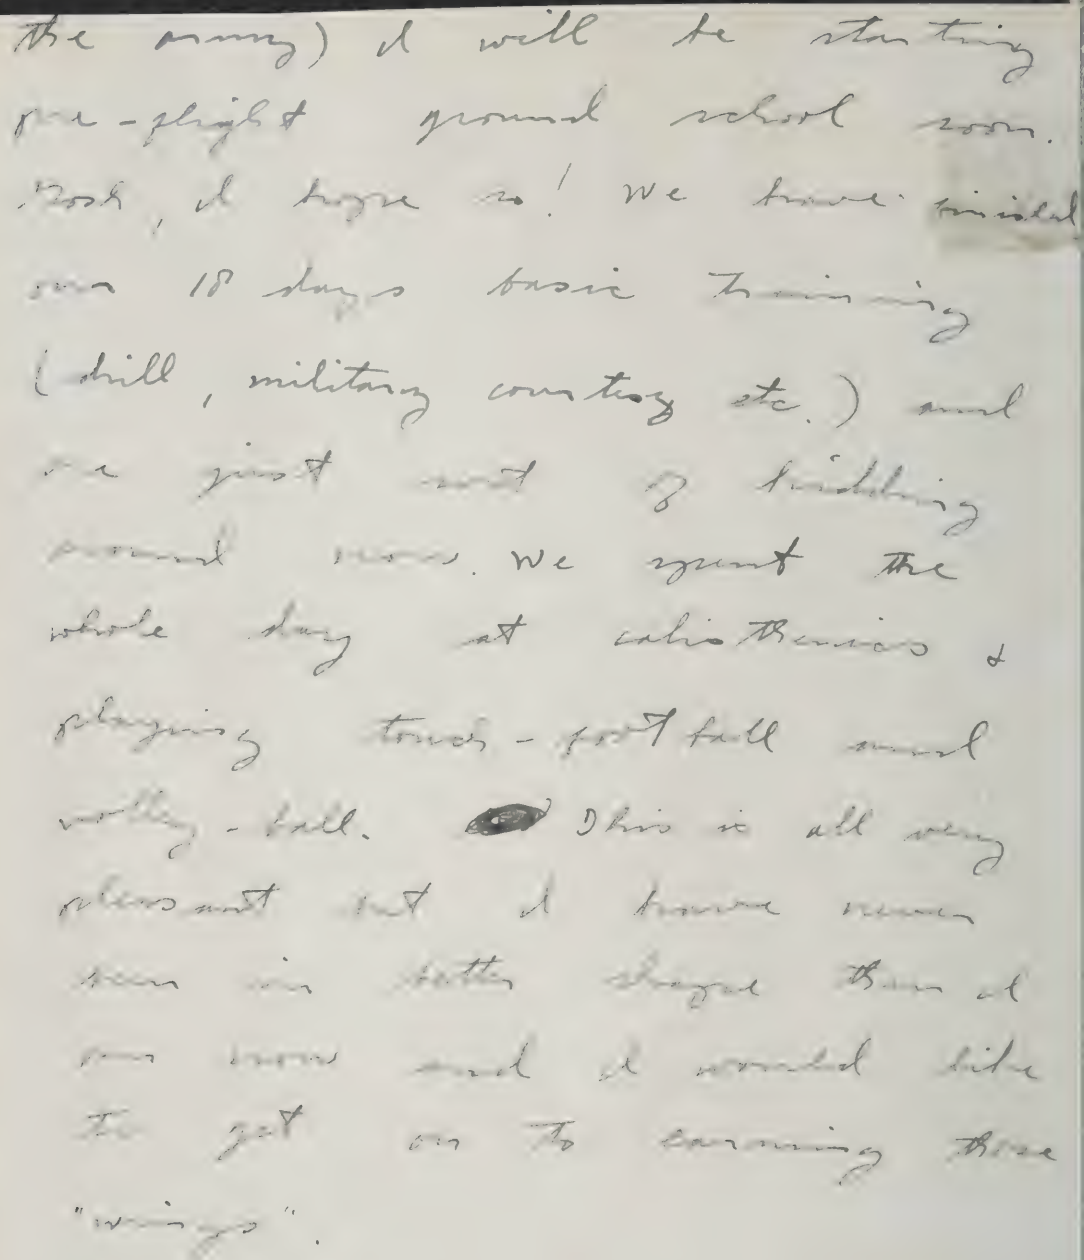 the army) I will be starting
pre-flight ground school soon.
Gosh, I hope so! We have finished
our 18 days basic training
(drill, military courtesy etc.) and
are just sort of kidding
around now. We spent the
whole day at calisthenics &
playing touch-football and
volley-ball. This is all very
pleasant but I have never
been in better shape than I
am now and I would like
to get on to earning those
"wings".